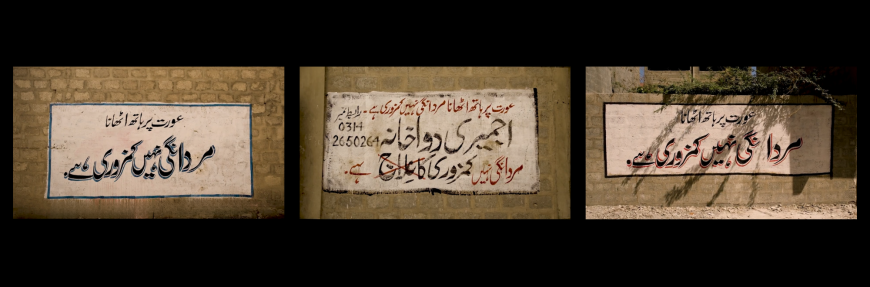 عورت پر ہاتھ اٹھانا
مردانگی نہیں کمزوری ہے۔
عورت پر ہاتھ اٹھانا مردانگی نہیں کمزوری ہے۔ رابطہ نمبر
0314
2650264
اجمیری دواخانہ
مردانگی نہیں کمزوری کا علاج ہے۔
عورت پر ہاتھ اٹھانا
مردانگی نہیں کمزوری ہے۔